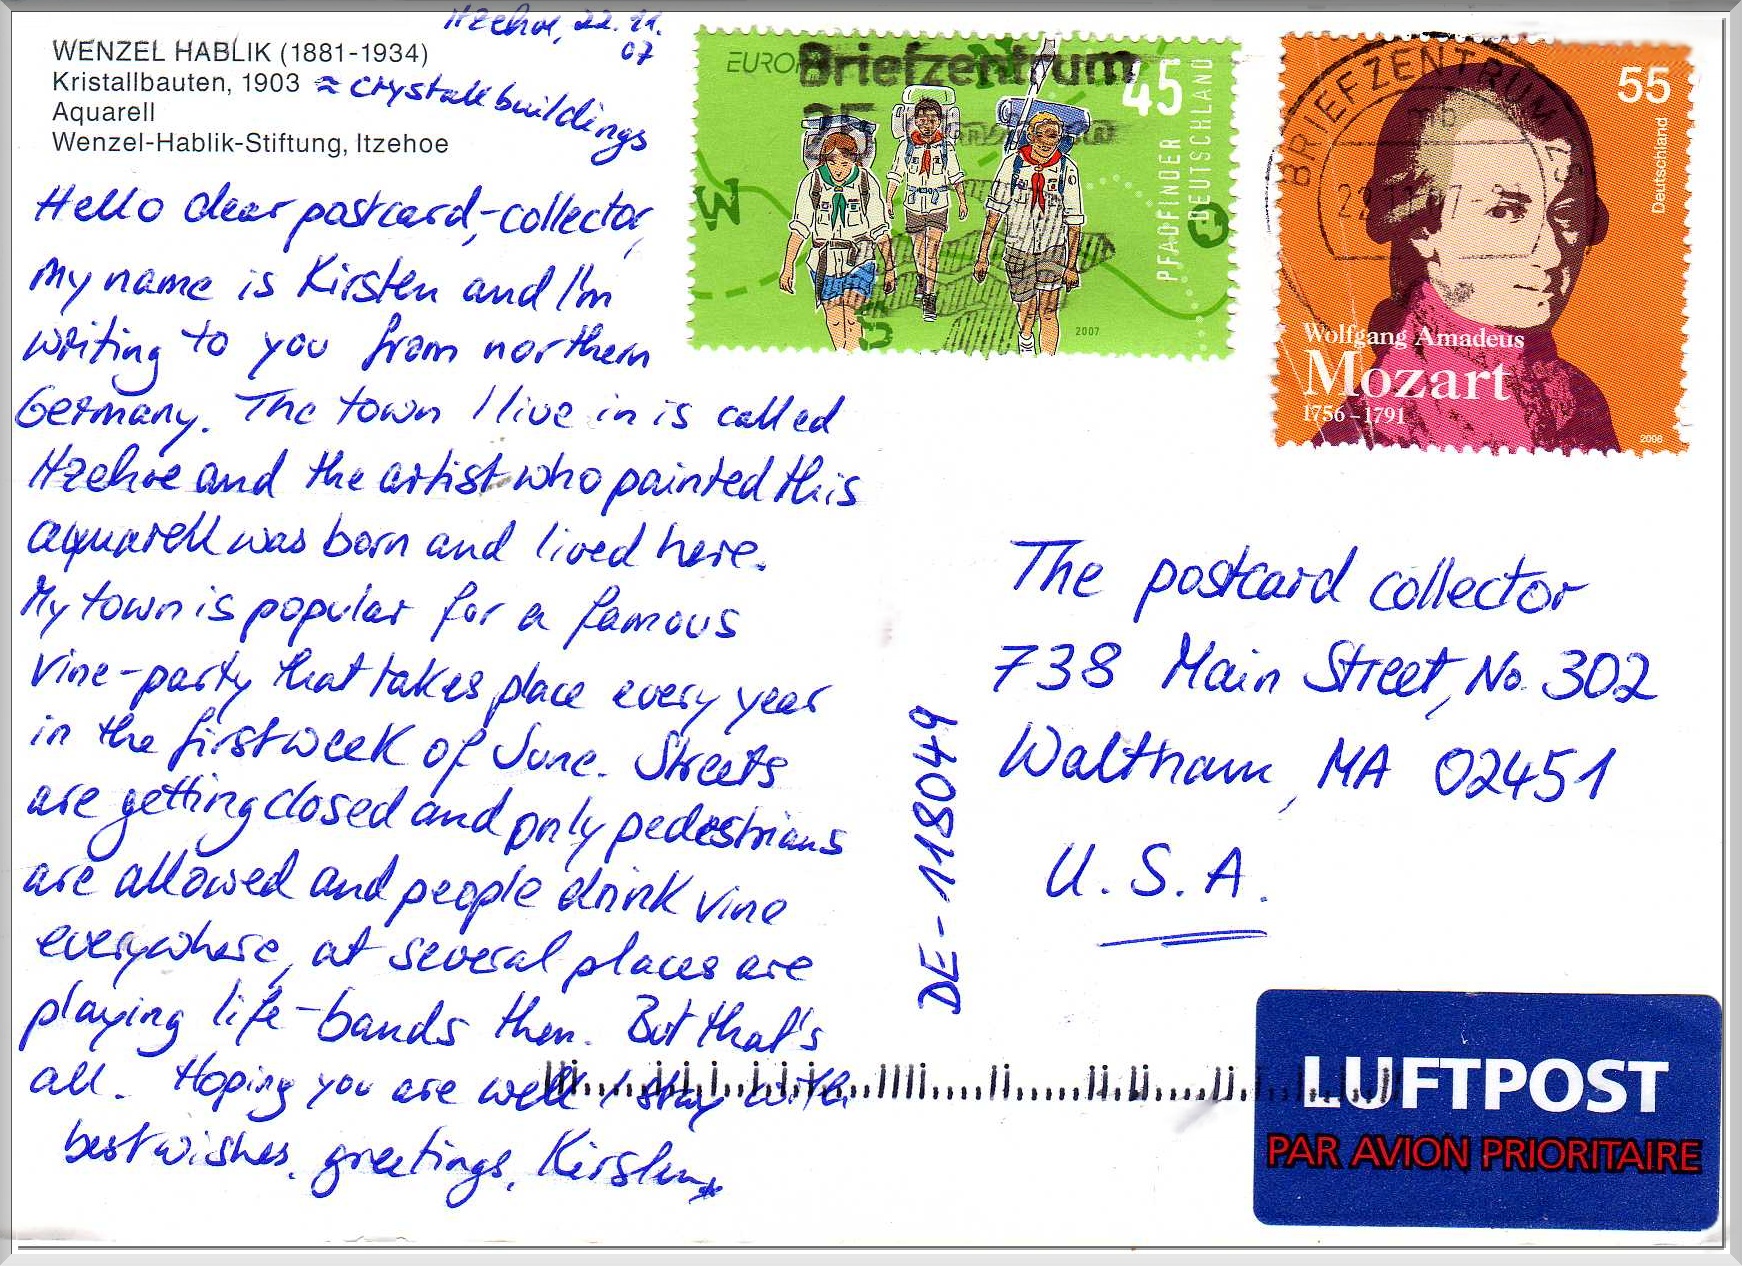 Itzehoe, 22.11.
07
WENZEL HABLIK (1881-1934)
Kristallbauten, 1903 ≈ crystallbuildings
Aquarell
Wenzel-Hablik-Stiftung, Itzehoe
Hello dear postcard-collector,
my name is Kirsten and I'm
writing to you from northern
Germany. The town I live in is called
Itzehoe and the artist who painted this
aquarell was born and lived here.
My town is popular for a famous
vine-party that takes place every year
in the first week of June. Streets
are getting closed and only pedestrians
are allowed and people drink vine
everywhere, at several places are
playing life-bands then. But that's
all. Hoping you are well I stay with
best wishes, greetings, Kirsten
EUROPA
Briefzentrum
25
45
PFADFINDER
DEUTSCHLAND
N
W
O
S
2007
BRIEFZENTRUM 25
22.11.07
55
Deutschland
Wolfgang Amadeus
Mozart
1756–1791
2006
The postcard collector
738 Main Street, No. 302
Waltham, MA 02451
U.S.A.
DE-118049
LUFTPOST
PAR AVION PRIORITAIRE